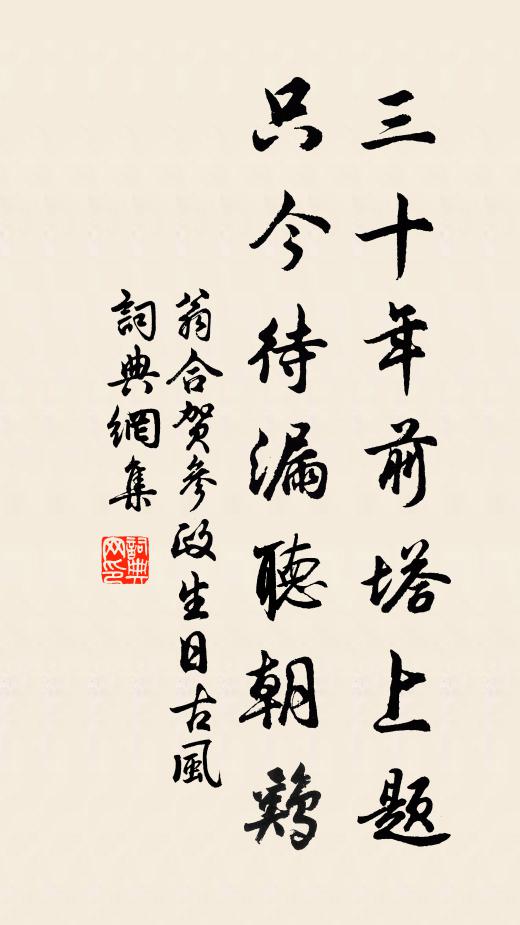 三十年前塔上題
只今待漏聽朝鷄
翁合賀參政生日古風
詞典網集
詞典
网印